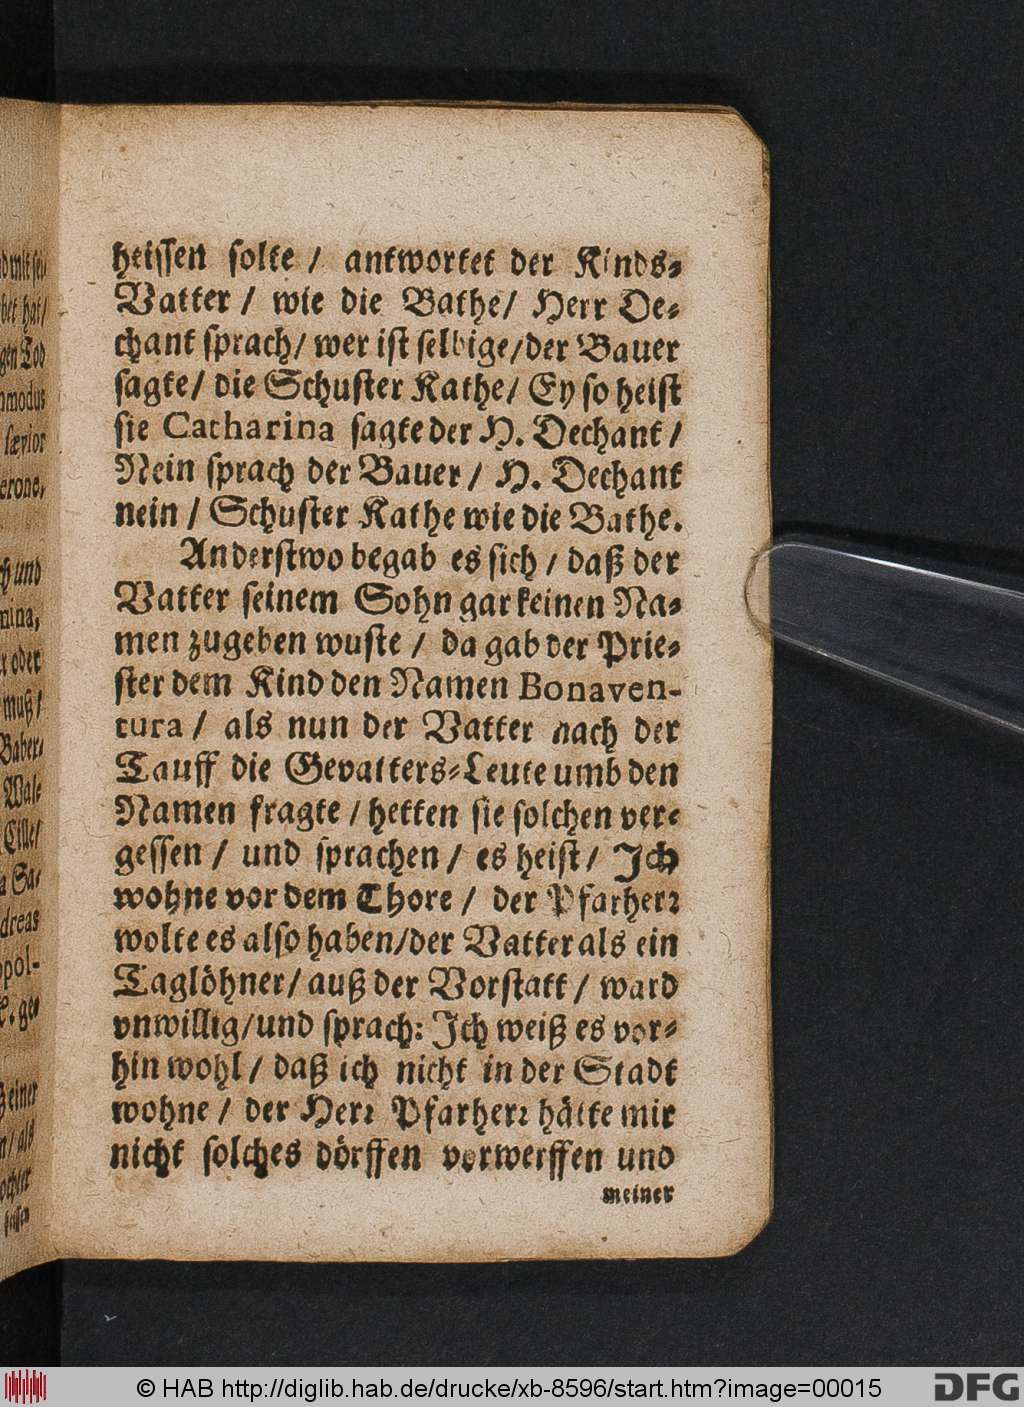 heissen solte / antwortet der Kinds-
Vatter / wie die Bathe / Herr De-
chant sprach / wer ist selbige / der Bauer
sagte / die Schuster Kathe / Ey so heist
sie Catharina sagte der H. Dechant /
Nein sprach der Bauer / H. Dechant
nein / Schuster Kathe wie die Bathe.
Anderstwo begab es sich / daß der
Vatter seinem Sohn gar keinen Na-
men zugeben wuste / da gab der Prie-
ster dem Kind den Namen Bonaven-
tura / als nun der Vatter nach der
Tauff die Gevatters-Leute umb den
Namen fragte / hetten sie solchen ver-
gessen / und sprachen / es heist / Jch
wohne vor dem Thore / der Pfarherr
wolte es also haben / der Vatter als ein
Taglöhner / auß der Vorstatt / ward
vnwillig / und sprach: Jch weiß es vor-
hin wohl / daß ich nicht in der Stadt
wohne / der Herr Pfarherr hätte mir
nicht solches dörffen vorwerffen und
meiner
bet hat /
gen Tod
mmodus
sævior
erone,
ch und
nina,
r oder
muß /
Baber-
Wal-
Cille /
a Sa-
dreas
opol-
einer
n / als
© HAB http://diglib.hab.de/drucke/xb-8596/start.htm?image=00015
DFG